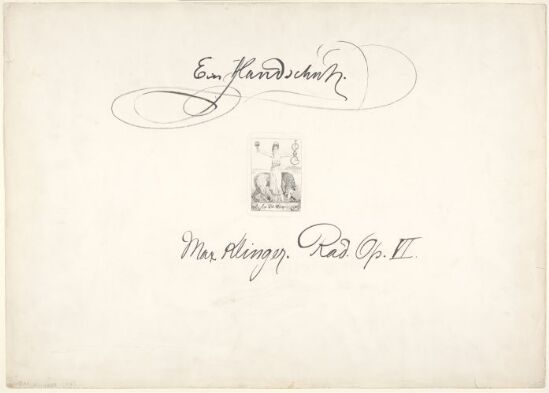 Ein Handschuh.
Max Klinger. Rad. Op. VI.